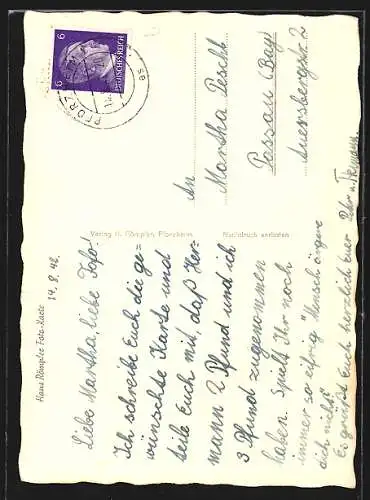 Hans Römpler Foto-Karte
14. 8. 42.
Liebe Martha, liebe Toto!
Ich schreibe Euch die ge-
wünschte Karte und
teile Euch mit, daß Her-
mann 2 Pfund und ich
3 Pfund zugenommen
haben. Spielt Ihr noch
immer so eifrig "Mensch ärgere
dich nicht"?
Es grüßt Euch herzlich Euer Peter u. Hermann.
Verlag H. Römpler, Pforzheim
Nachdruck verboten
6 6
DEUTSCHES REICH
PFORZ
An
Martha Peschl
Passau (Bay)
Auerspergstr. 2